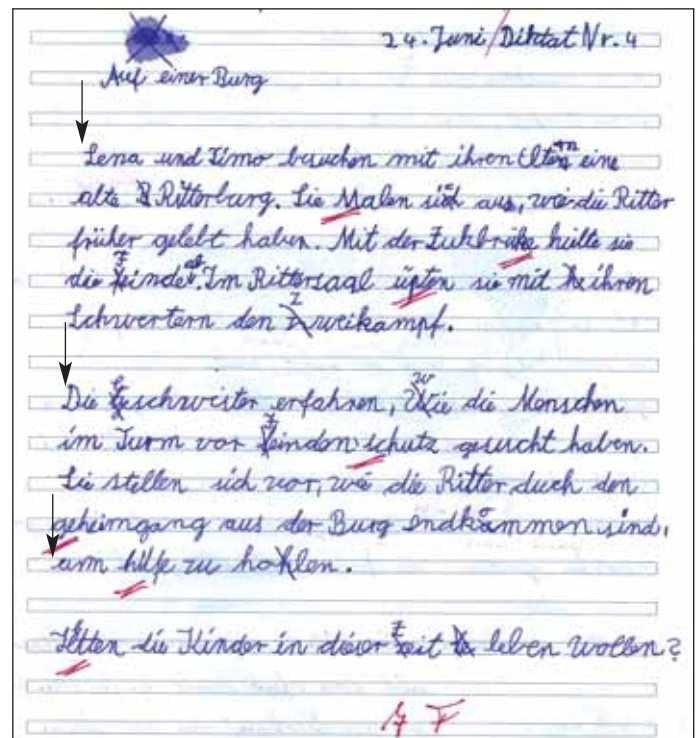 24. Juni/Diktat Nr. 4
Auf einer Burg
Lena und Timo besuchen mit ihren Eltern eine
alte Ritterburg. Sie Malen sich aus, wie die Ritter
früher gelebt haben. Mit der Zukbrüke hielte sie
die Feinde ab. Im Rittersaal üpten sie mit ihren
Schwertern den Zweikampf.
Die Geschwister erfahren, wie die Menschen
im Turm vor Feinden schutz gesucht haben.
Sie stellen sich vor, wie die Ritter duch den
geheimgang aus der Burg endkammen sind,
um hilfe zu holen.
Hetten die Kinder in dieser Zeit leben wollen?
7 F